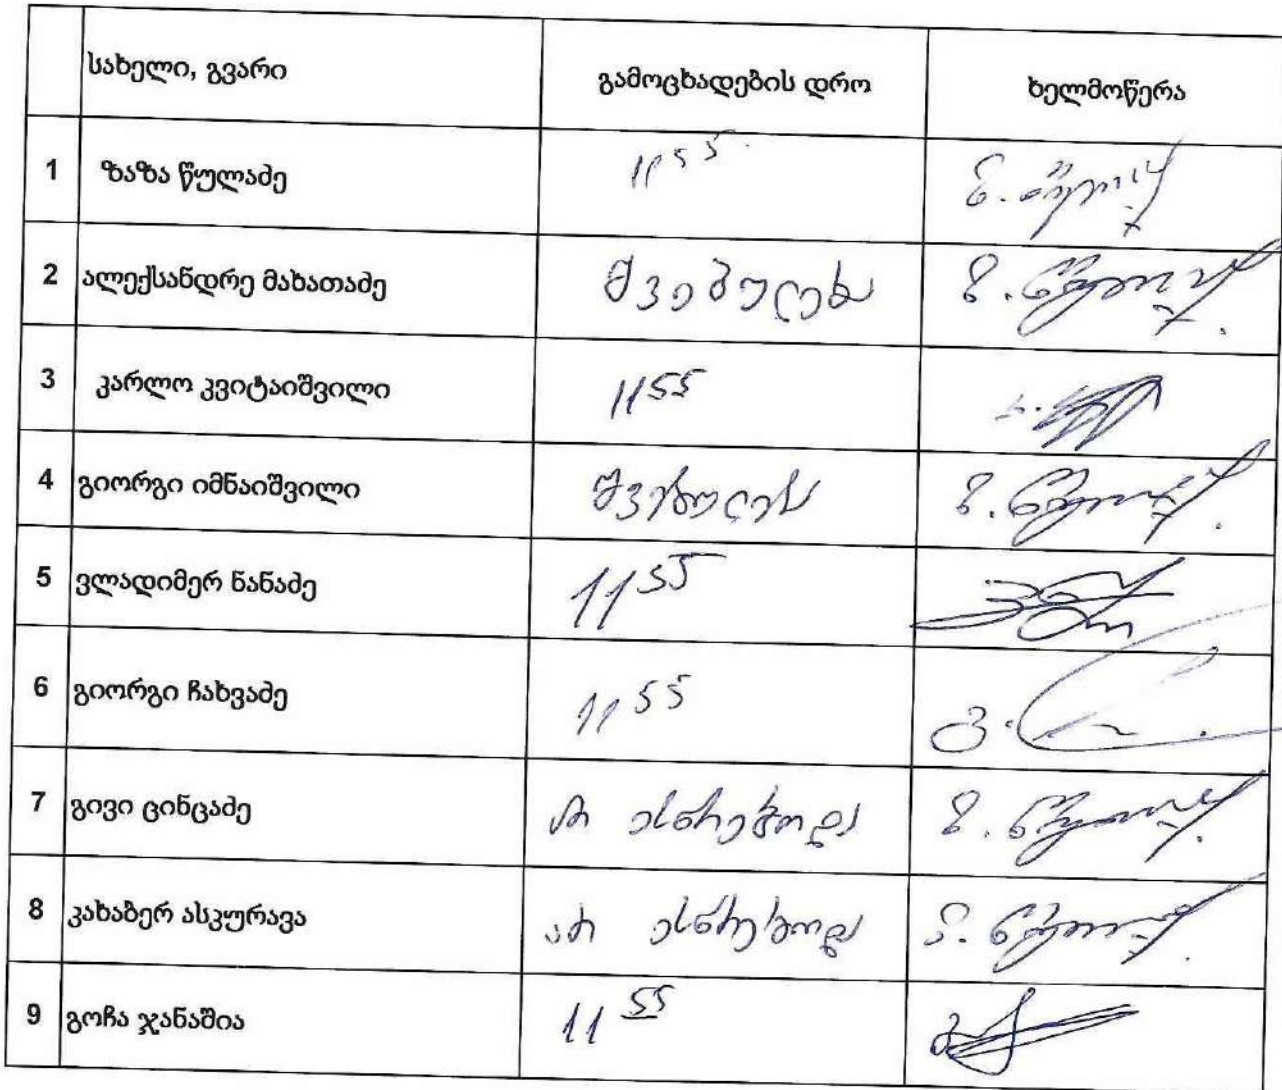 სახელი, გვარი გამოცხადების დრო ხელმოწერა
1 ზაზა წულაძე 11 55
2 ალექსანდრე მახათაძე შვებულება
3 კარლო კვიტაიშვილი 11 55
4 გიორგი იმნაიშვილი შვებულება
5 ვლადიმერ ნანაძე 11 55
6 გიორგი ჩახვაძე 11 55
7 გივი ცინცაძე არ ესწრებოდა
8 კახაბერ ასკურავა არ ესწრებოდა
9 გოჩა ჯანაშია 11 55